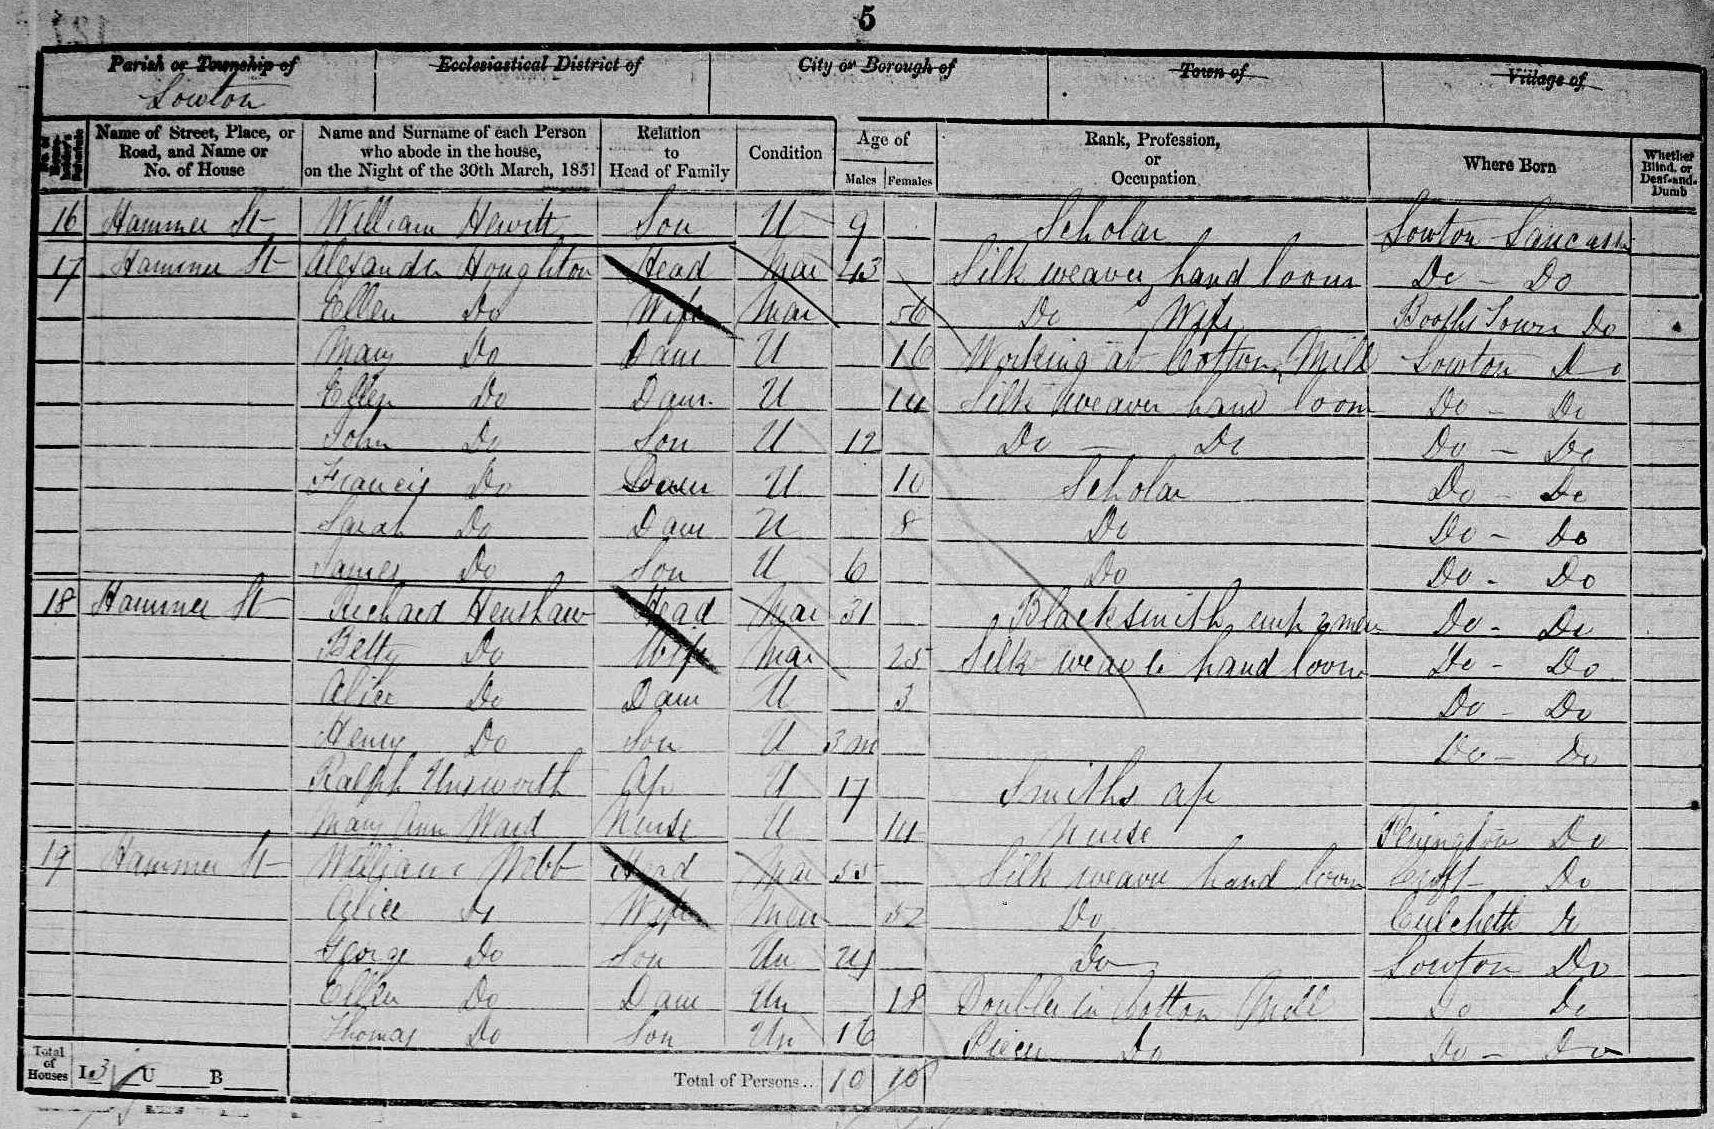 5
Parish or Township of Ecclesiastical District of City or Borough of Town of Village of
Lowton
Name of Street, Place, or Road, and Name or No. of House Name and Surname of each Person who abode in the house, on the Night of the 30th March, 1851 Relation to Head of Family Condition Age of Males Females Rank, Profession, or Occupation Where Born Whether Blind, or Deaf-and-Dumb
16 Hammer St William Hewitt Son U 9 Scholar Lowton Lancashr
17 Hammer St Alexander Houghton Head Mar 43 Silk weaver hand loom Do - Do
Ellen Do Wife Mar Do Wife Booths Town Do
Mary Do Daur U 16 Working at Cotton Mill Lowton Do
Ellen Do Daur. U 14 Silk weaver hand loom Do - Do
John Do Son U 12 Do - Do Do - Do
Francis Do Daur U 10 Scholar Do - Do
Sarah Do Daur U 8 Do Do - Do
James Do Son U 6 Do Do - Do
18 Hammer St Richard Henshaw Head Mar 31 Blacksmith emp 2 men Do - Do
Betty Do Wife Mar 25 Silk weaver hand loom Do - Do
Alice Do Daur U 3 Do - Do
Henry Do Son U 3m Do - Do
Ralph Unsworth Ap U 17 Smiths ap
Mary Ann Ward Nurse U 14 Nurse Penington Do
19 Hammer St William Webb Head Mar 55 Silk weaver hand loom Croft Do
Alice Do Wife Mar 52 Do Culcheth Do
George Do Son Un 24 Do Lowton Do
Ellen Do Daur Un 18 Doubler in Cotton Mill Do Do
Thomas Do Son Un 16 Piecer Do Do - Do
Total of Houses I 3 U B Total of Persons.. 10 10